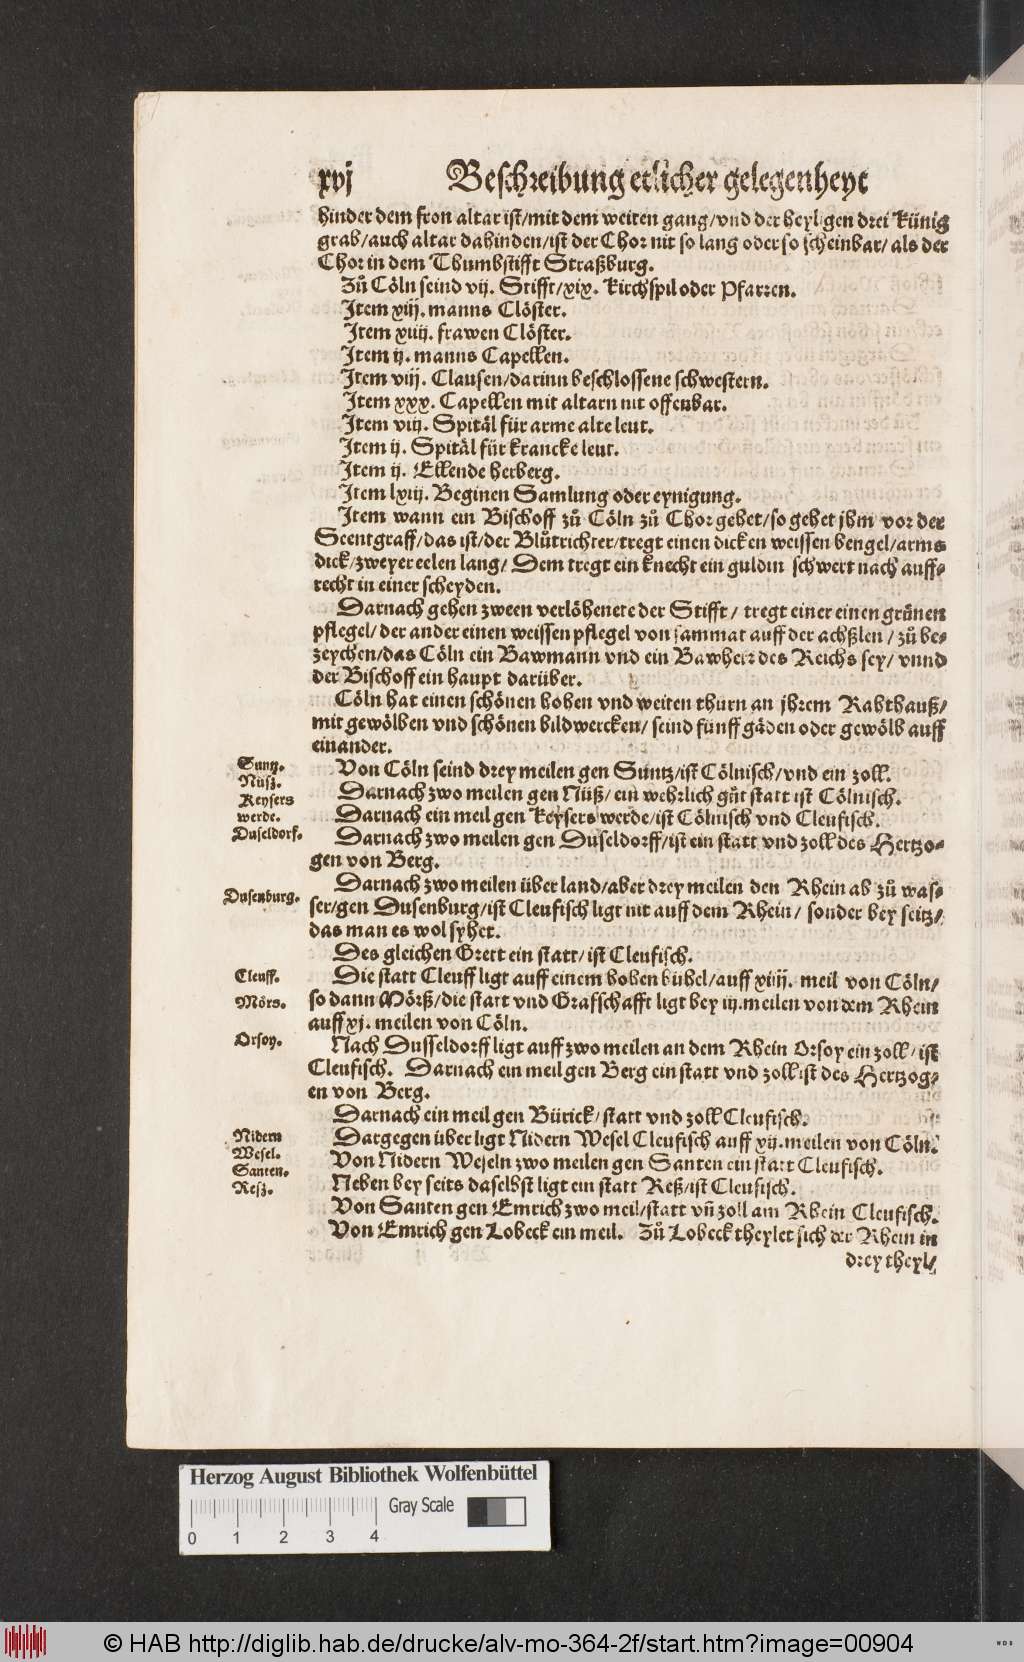 xvj Beschreibung etlicher gelegenheyt
hinder dem fron altar ist/mit dem weiten gang/vnd der heyligen drei Künig
grab/auch altar dahinden/ist der Chor nit so lang oder so scheinbar/als der
Chor in dem Thumbstifft Straßburg.
Zů Cöln seind vij. Stifft/xix. Kirchspil oder Pfarren.
Item xiij. manns Clöster.
Item xiiij. frawen Clöster.
Item ij. manns Capellen.
Item viij. Clausen/darinn beschlossene schwestern.
Item xxx. Capellen mit altarn nit offenbar.
Item viij. Spitäl für arme alte leut.
Item ij. Spitäl für krancke leut.
Item ij. Ellende herberg.
Item lxiij. Beginen Samlung oder eynigung.
Item wann ein Bischoff zů Cöln zů Chor gehet/so gehet jhm vor der
Scentgraff/das ist/der Blůtrichter/tregt einen dicken weissen bengel/arms
dick/zweyer eelen lang/ Dem tregt ein knecht ein guldin schwert nach auff-
recht in einer scheyden.
Darnach gehen zween verlöhenete der Stifft/ tregt einer einen grünen
pflegel/der ander einen weissen pflegel von sammat auff der achßlen/zů be-
zeychen/das Cöln ein Bawmann vnd ein Bawherr des Reichs sey/ vnnd
der Bischoff ein haupt darüber.
Cöln hat einen schönen hohen vnd weiten thurn an jhrem Rahthauß/
mit gewölben vnd schönen bildwercken/ seind fünff gäden oder gewölb auff
einander.
Suntz. Von Cöln seind drey meilen gen Suntz/ist Cölnisch/vnd ein zoll.
Nüsz. Darnach zwo meilen gen Nüß/ein wehrlich gůt statt ist Cölnisch.
Keysers werde. Darnach ein meil gen Keysers werde/ist Cölnisch vnd Cleufisch.
Duseldorf. Darnach zwo meilen gen Duseldorff/ist ein statt vnd zoll des Hertzo-
gen von Berg.
Darnach zwo meilen über land/aber drey meilen den Rhein ab zů was-
Dusenburg. ser/gen Dusenburg/ist Cleufisch ligt nit auff dem Rhein/ sonder bey seitz/
das man es wol syhet.
Des gleichen Grett ein statt/ist Cleufisch.
Cleuff. Die statt Cleuff ligt auff einem hohen bühel/auff xiiij. meil von Cöln/
Mörs. so dann Mörß/die statt vnd Grafschafft ligt bey iij.meilen von dem Rhein
auff xj. meilen von Cöln.
Orsoy. Nach Dusseldorff ligt auff zwo meilen an dem Rhein Orsoy ein zoll/ist
Cleufisch. Darnach ein meil gen Berg ein statt vnd zoll ist des Hertzog-
en von Berg.
Darnach ein meil gen Bürick/statt vnd zoll Cleufisch.
Nidern Wesel. Dargegen über ligt Nidern Wesel Cleufisch auff xij.meilen von Cöln.
Santen. Von Nidern Weseln zwo meilen gen Santen ein statt Cleufisch.
Resz. Neben bey seits daselbst ligt ein statt Reß/ist Cleufisch.
Von Santen gen Emrich zwo meil/statt vñ zoll am Rhein Cleufisch.
Von Emrich gen Lobeck ein meil. Zů Lobeck theylet sich der Rhein in
drey theyl/
Herzog August Bibliothek Wolfenbüttel
Gray Scale
0 1 2 3 4
© HAB http://diglib.hab.de/drucke/alv-mo-364-2f/start.htm?image=00904